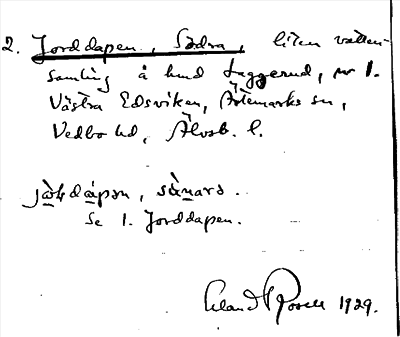 2. Jorddapen, Södra, liten vatten-
samling å hmd Häggerud, nr 1.
Västra Edsviken, Ärtemarks sn,
Vedbo hd, Älvsb. l.
se 1. Jorddapen.
Erland Rosell 1929.